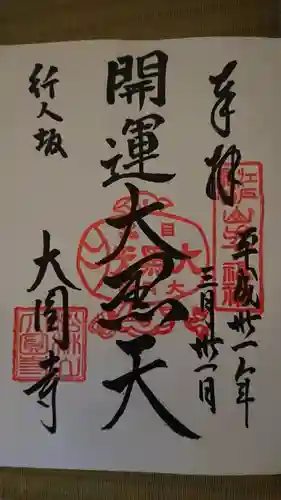 奉拝
平成卅一年
三月卅一日
開運大黒天
行人坂
大圓寺